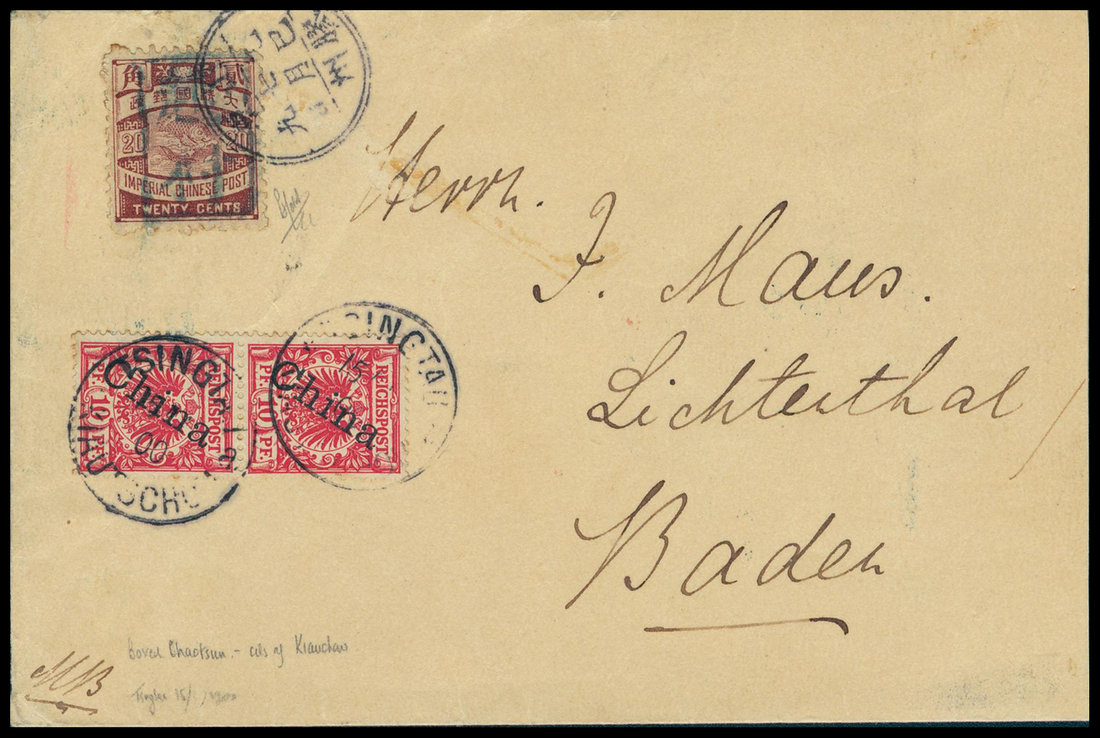 角 貳
政郵國清大
20 20
IMPERIAL CHINESE POST
TWENTY CENTS
九月
膠州
Herrn.
J. Maus.
Lichterthal/
Baden
REICHSPOST
10 PF.
China
REICHSPOST
10 PF.
China
TSINGTAU
00
KIAUTSCHOU
TSINGTAU
15
MB
Boxed Chaotsun. - cds of Kiauchau
15/ 1900